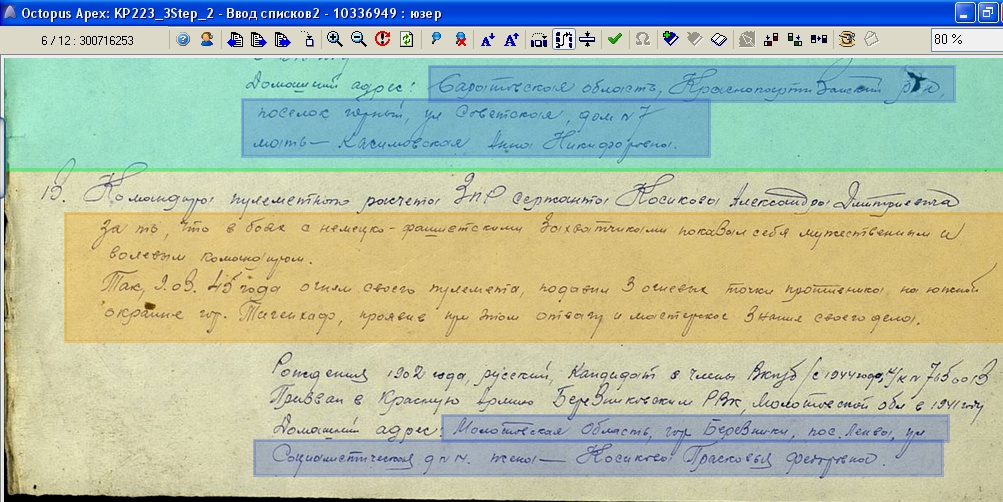 Octopus Apex: KP223_3Step_2 - Ввод списков2 - 10336949 : юзер
6 / 12 : 300716253
80 %
Домашний адрес: Саратовская область, Краснопартизанский р-н,
поселок горный, ул Советская, дом №7
мать – Касимовская Анна Никифоровна.
13. Командира пулеметного расчета 3ПР сержанта Носикова Александра Дмитриевича
За то, что в боях с немецко-фашистскими захватчиками показал себя мужественным и
волевым командиром.
Так, 9.03.45 года огнем своего пулемета, подавил 3 огневые точки противника на южной
окраине гор. Тигенхаф, проявив при этом отвагу и мастерское знание своего дела.
Рождения 1902 года, русский, Кандидат в члены ВКП/б/ с 1944 года, к/к № 7650013
Призван в Красную Армию Березниковским РВК, Молотовской обл в 1941 году
Домашний адрес: Молотовская область, гор Березники, пос. Ленва, ул
Социалистическая д жена – Носикова Прасковья Федоровна.